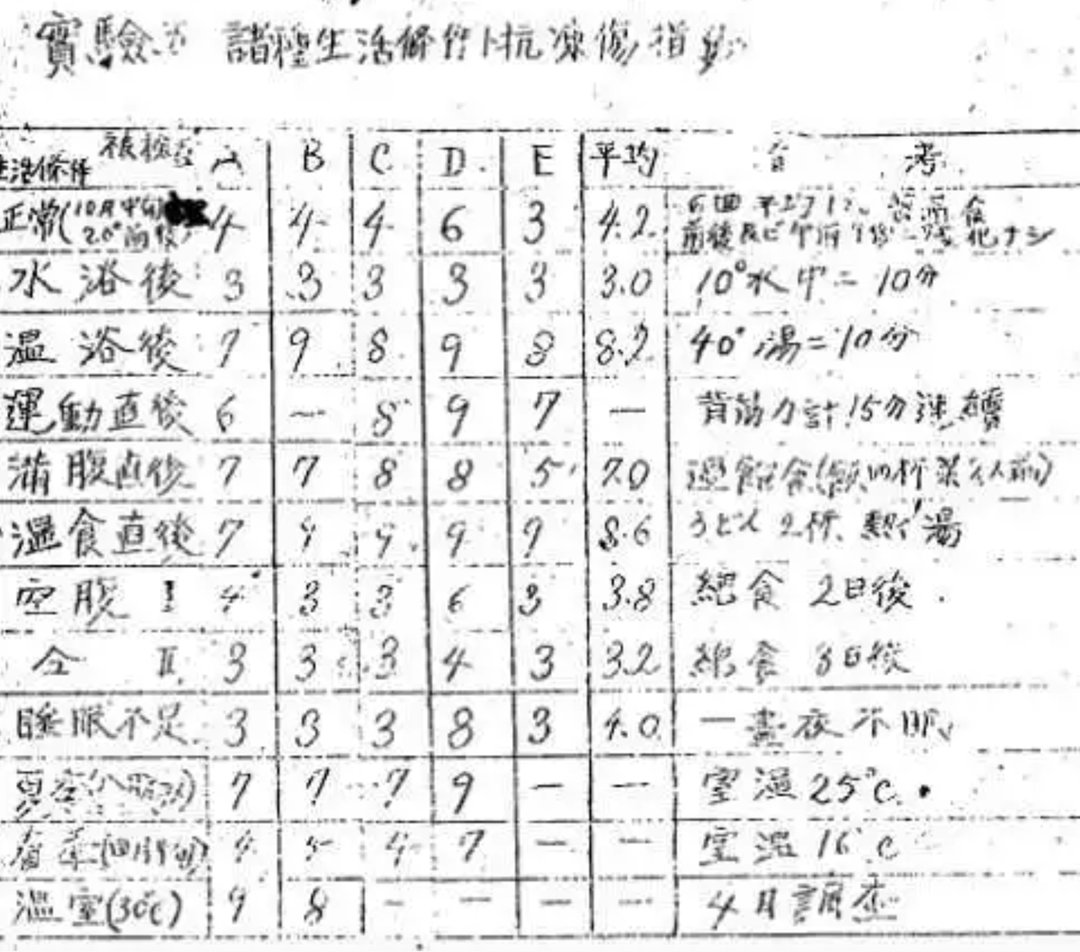 實驗 諸種生活條件ト抗凍傷指数
生活條件 被検者 A B C D E 平均 備考
正常(10月中旬 20°前後) 4 4 4 6 3 4.2 前後及ビ午前午後ニ変化ナシ
水浴後 3 3 3 3 3 3.0 10°水中ニ10分
温浴後 7 9 8 9 8 8.2 40°湯ニ10分
運動直後 6 — 8 9 7 — 背筋力計15分連續
満腹直後 7 7 8 8 5 7.0 過飽食
温食直後 7 9 9 9 9 8.6 うどん2杯、熱イ湯
空腹 I 4 3 3 6 3 3.8 絶食 2日後
仝 II 3 3 3 4 3 3.2 絶食 3日後
睡眠不足 3 3 3 8 3 4.0 一晝夜不眠
夏季 7 7 7 9 — — 室温25°C
春季(四月中旬) 4 5 4 7 — — 室温16°C
温室(30℃) 9 8 — — — — 4月調査